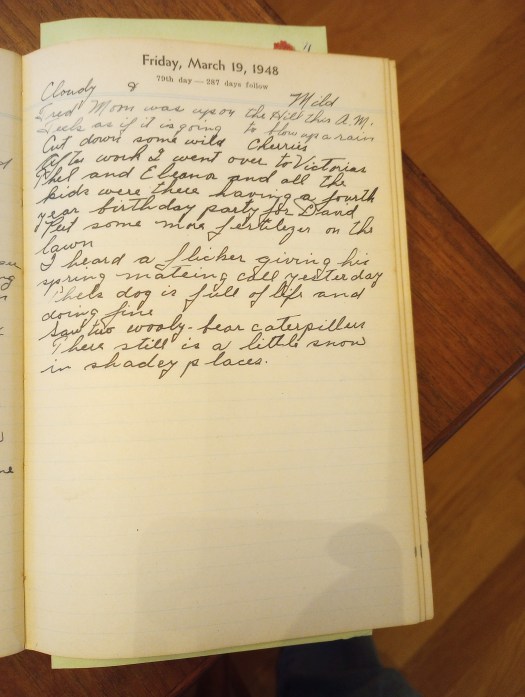 Friday, March 19, 1948
79th day — 287 days follow
Cloudy & Mild
Fred's Mom was up on the Hill this A.M.
Feels as if it is going to blow up a rain
Cut down some wild Cherries
After work I went over to Victorias
Phel and Eleanor and all the
kids were there having a fourth
year birthday party for David
Put some more fertilizer on the
lawn
I heard a flicker giving his
spring mateing call yesterday
Phels dog is full of life and
doing fine
Saw two wooly-bear caterpillers
There still is a little snow
in shadey places.